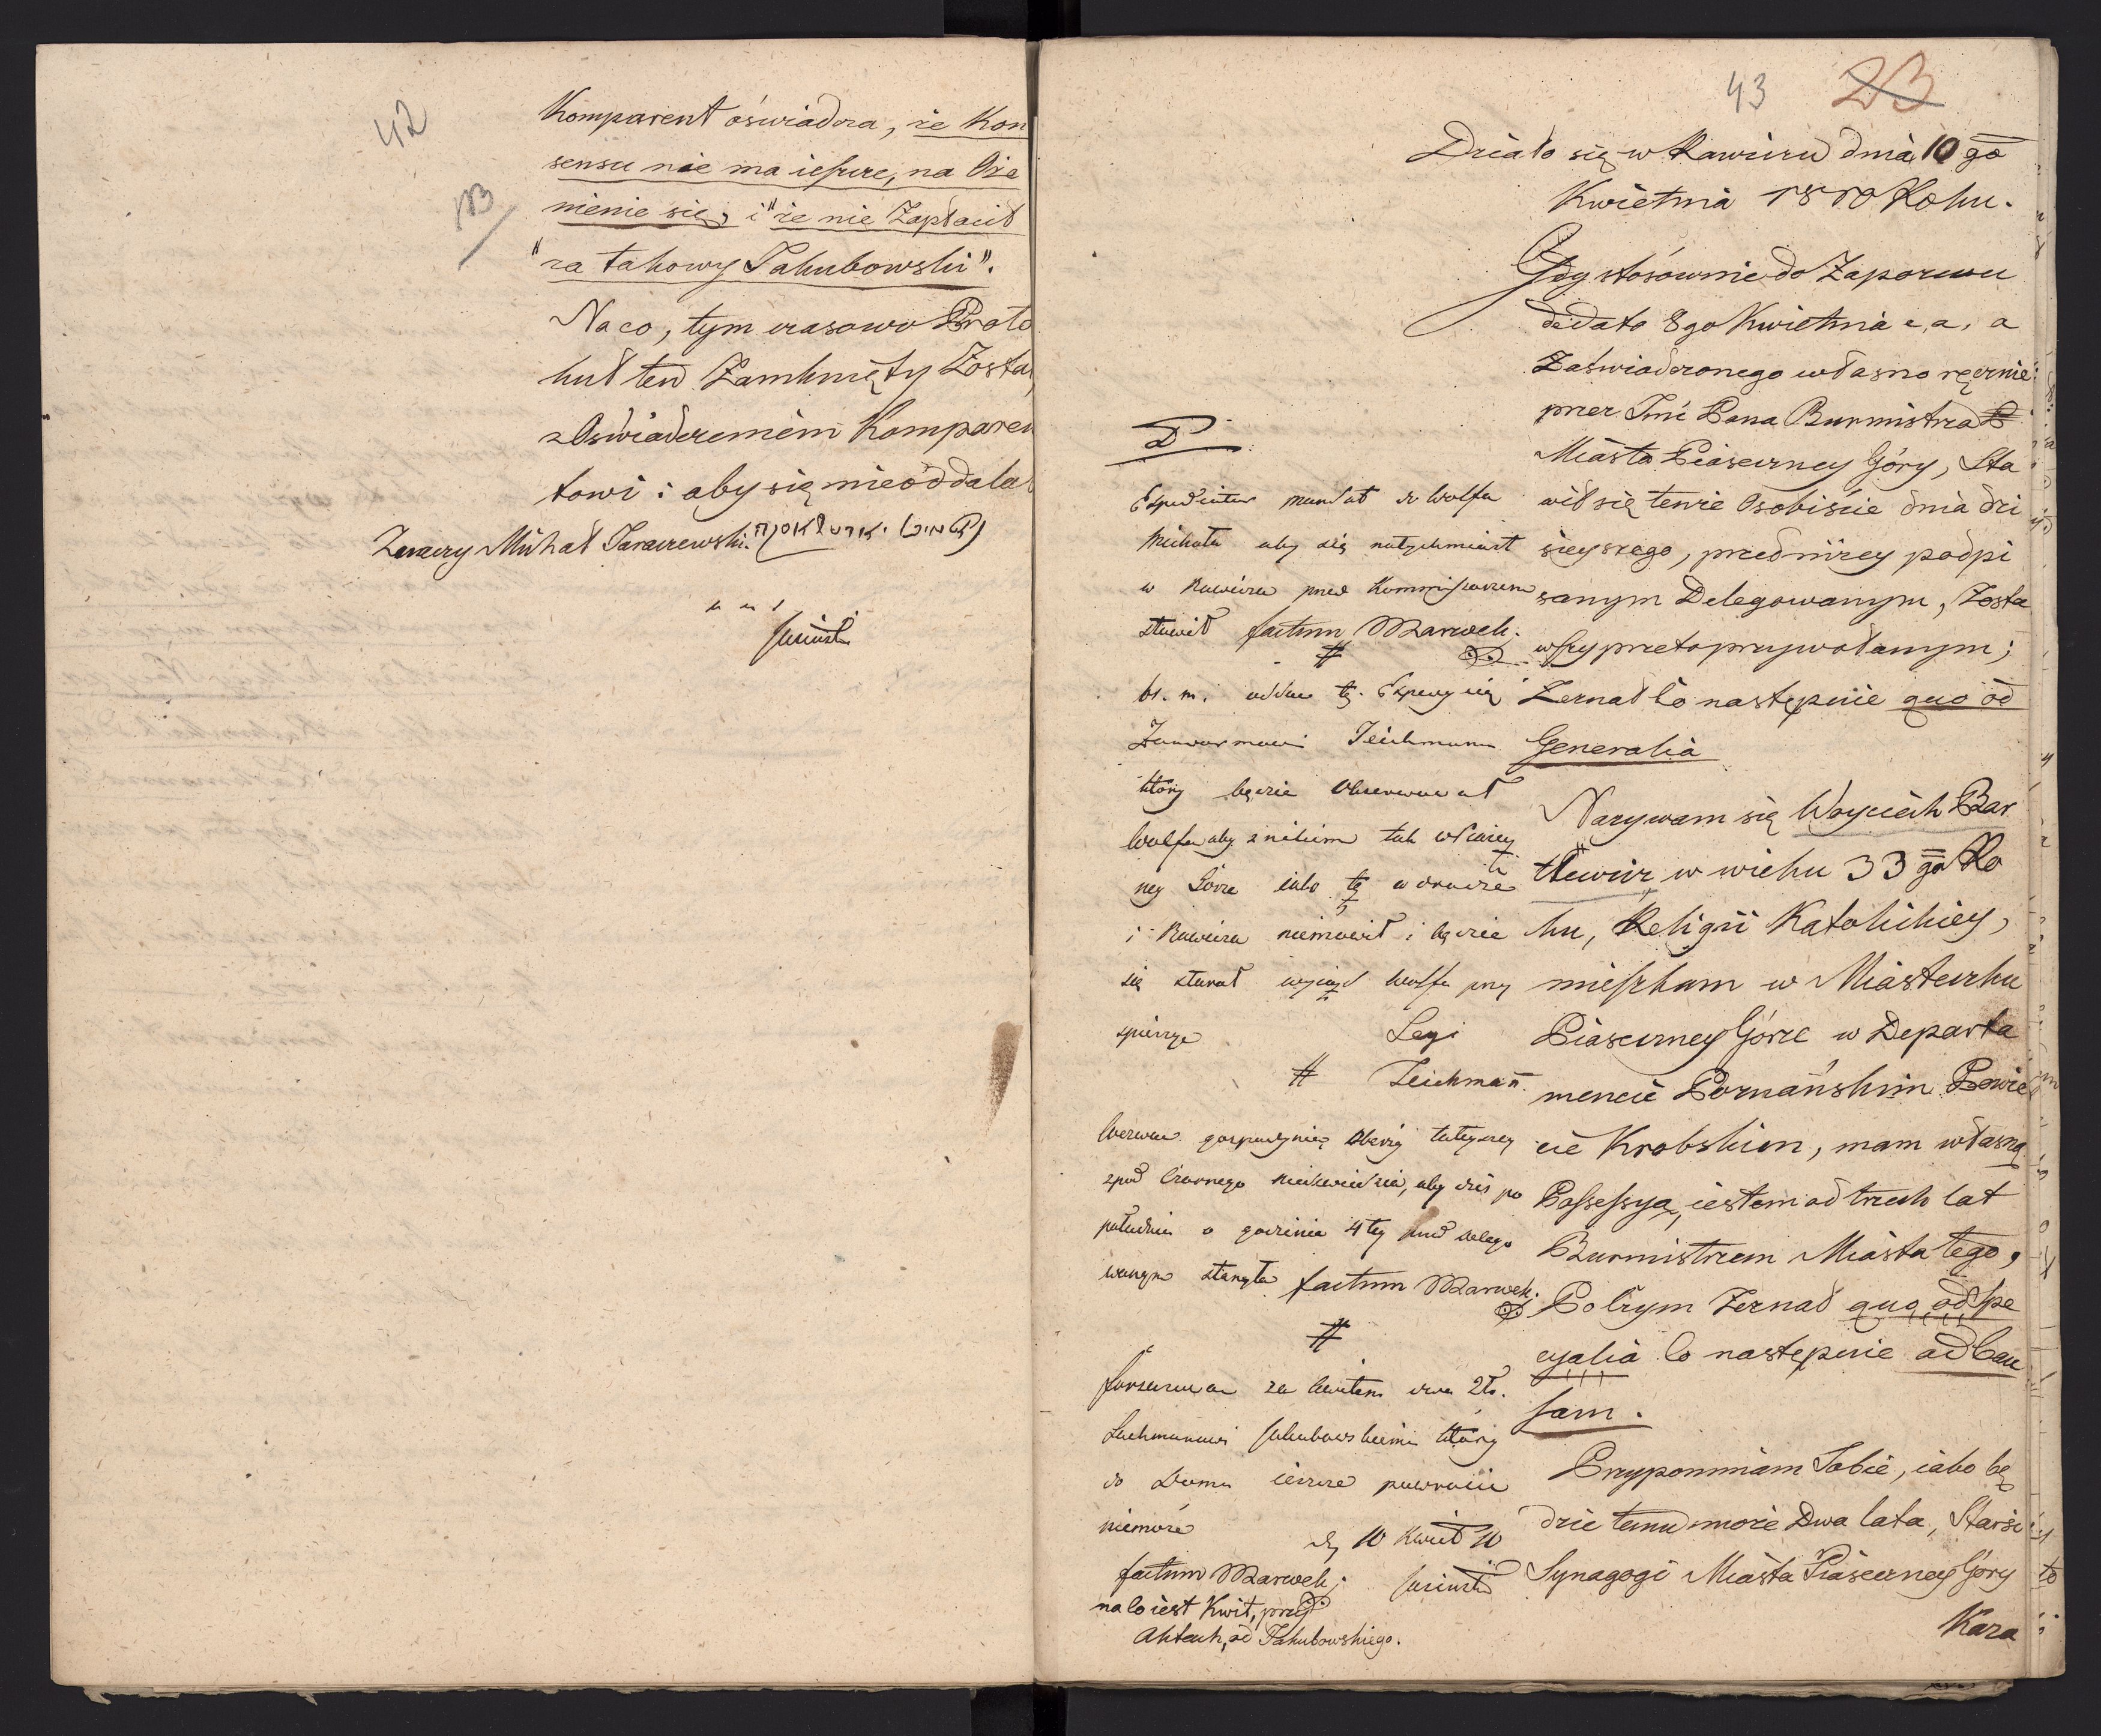 42
Komparent óswiadcza, że Kon
sensu nie ma ieszcze, na Oże
NB
nienie się, i "że nie Zapłacił
"za takowy Jakubowski".
Na co, tym czasowo Proto
kuł ten Zamknięty Został,
z Oswiadczeniem Komparen
towi: aby się nieóddalał
Michał
43 23
Działo się w Rawiczu dnia 10 go
Kwietnia 1810 Roku.
Gdy stósównie do Zapozwu
de dato 8 go Kwietnia c, a, a
Zaświadczonego własno ręcznie
przez Jmć Pana Burmistrza
Miasta Piaseczney Góry, Sta
wił się tenże Osobiście dnia dzi
sieyszego, przedniżey podpi
sanym Delegowanym, Zosta
wszy przeto przywołanym;
Zeznał co następuie quo ad
Generalia
Nazywam się Woyciech Bar
tlewicz w wieku 33 go Ro
ku, Religii Katolickiey,
mieszkam w Miasteczku
Piaseczney Górze w Departa
mencie Poznańskim Powie
cie Krobskim, mam własną
Possessyą, iestem od trzech lat
Burmistrzem Miasta tego,
Po czym Zeznał quo ad Spe
cyalia co następuie ad Cau
sam.
Przypominam Sobie, iako bę
dzie temu może Dwa lata, Starsi
Synagogi Miasta Piaseczney Góry
Kara
mandat do Wolfa
Michała aby się natychmiast
w Rawiczu przed Kommissarzem
stawił factum Marweck.
Teichmann
który będzie Obserwował
Wolfa aby z nikim tak w Piasecz
ney Górze iako też w drodze
i Rawiczu niemówił i będzie
się starał wyiazd Wolfa przy
spieszyć
Legi
# Teichmann.
gospodynię Oberży tuteyszey
zpod Czarnego Niedźwiedzia, aby dziś po
południu o godzinie 4 tey przed Delego
wanym stanęła factum Marweck.
#
za kwitem dwa Zł.
Jakubowskiemu który
do Domu ieszcze powrócić
niemoże
d. 10 Kwiet 10
factum Marweck.
na to iest Kwit, przy
Aktach, od Jakubowskiego.